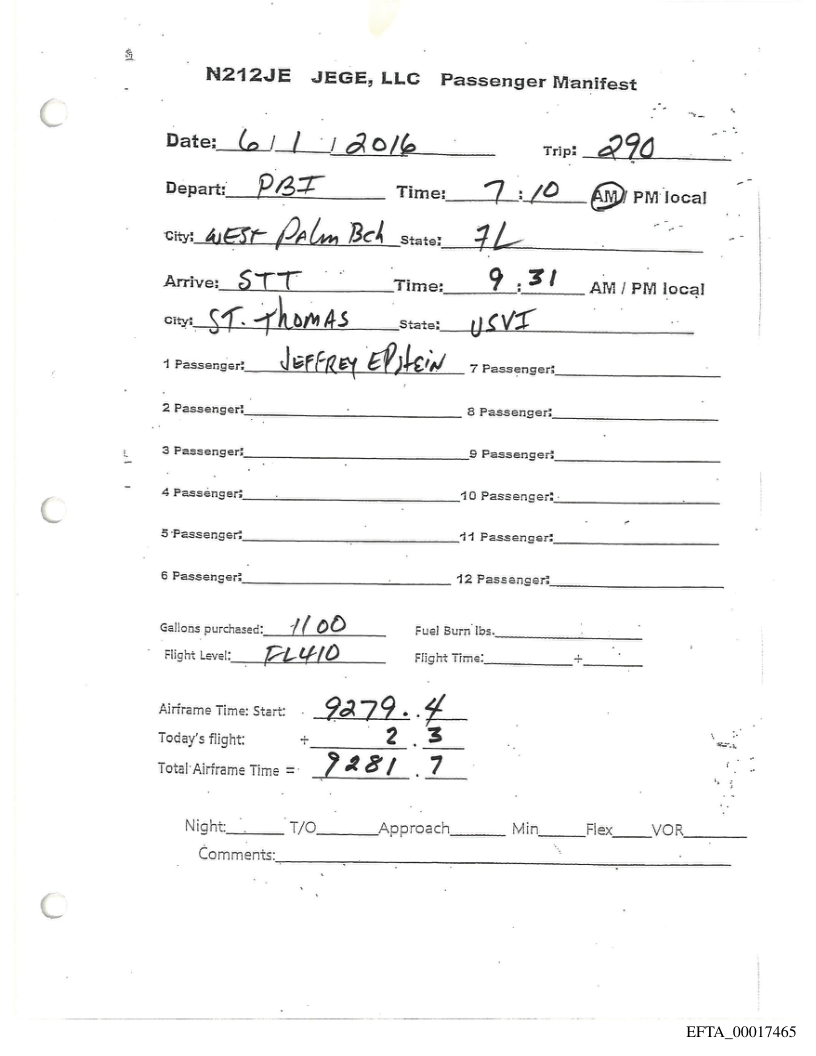 N212JE JEGE, LLC Passenger Manifest
Date: 6 / 1 / 2016 Trip: 290
Depart: PBI Time: 7 : 10 AM / PM local
City: WEST PALM BCH State: FL
Arrive: STT Time: 9 : 31 AM / PM local
City: ST. THOMAS State: USVI
1 Passenger: JEFFREY EPSTEIN 7 Passenger:
2 Passenger: 8 Passenger:
3 Passenger: 9 Passenger:
4 Passenger: 10 Passenger:
5 Passenger: 11 Passenger:
6 Passenger: 12 Passenger:
Gallons purchased: 1100 Fuel Burn lbs.
Flight Level: FL410 Flight Time: +
Airframe Time: Start: 9279.4
Today's flight: + 2.3
Total Airframe Time = 9281.7
Night: T/O Approach Min Flex VOR
Comments:
EFTA_00017465